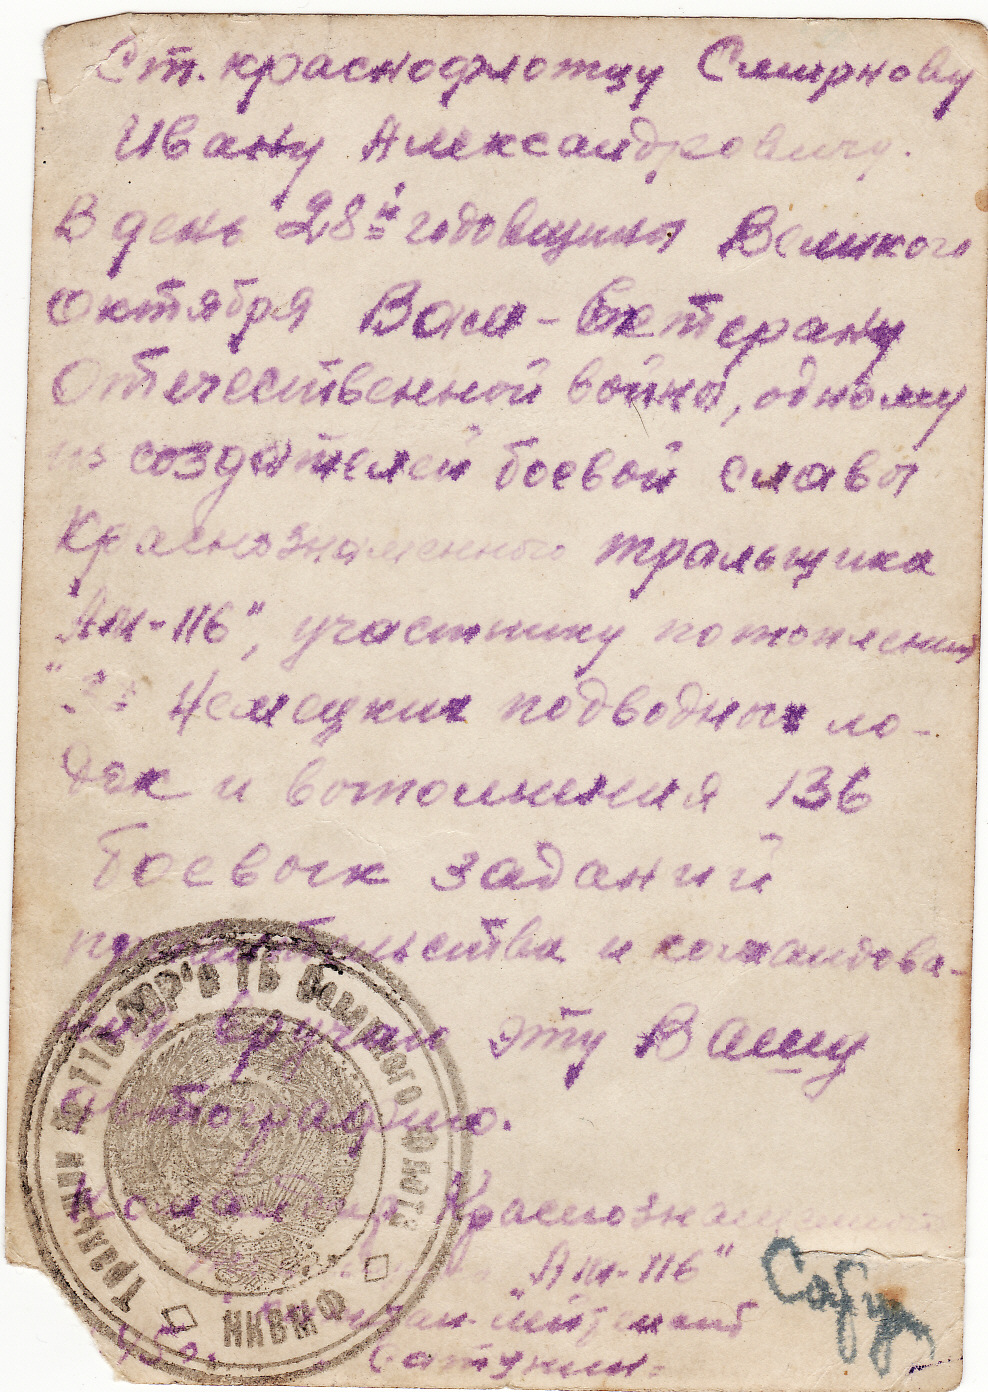 Ст. краснофлотцу Смирнову
Ивану Александровичу.
В день 28й годовщины Великого
Октября Вам - Ветерану
Отечественной войны, одному
из создателей боевой славы
Краснознаменного тральщика
"Ам-116", участнику потопления
Немецких подводных ло-
док и выполнения 136
боевых заданий
правительства и командова-
ния вручаю эту Вашу
фотографию.
Командир Краснознаменного
"Ам-116"
Капитан-лейтенант
Бабу
45г.
Тральщик № 116 Сев. Флота
НКВМФ